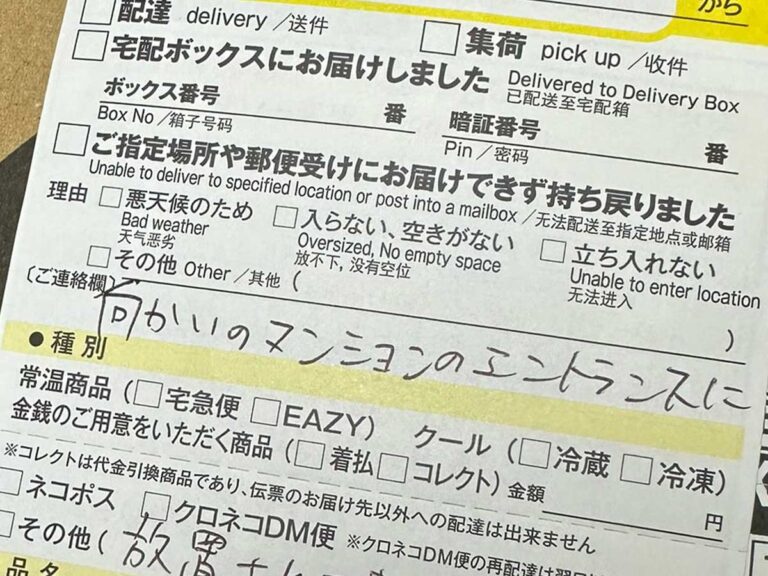 から
配達 delivery /送件
集荷 pick up /收件
宅配ボックスにお届けしました Delivered to Delivery Box
已配送至宅配箱
ボックス番号 番
Box No /箱子号码
暗証番号 番
Pin /密码
ご指定場所や郵便受けにお届けできず持ち戻りました
Unable to deliver to specified location or post into a mailbox /无法配送至指定地点或邮箱
理由
悪天候のため
Bad weather
天气恶劣
入らない、空きがない
Oversized, No empty space
放不下, 没有空位
立ち入れない
Unable to enter location
无法进入
その他 Other /其他 ( )
〔ご連絡欄〕
向かいのマンションのエントランスに
●種別
常温商品 (宅急便 EAZY) クール (冷蔵 冷凍)
金銭のご用意をいただく商品 (着払 コレクト) 金額 円
※コレクトは代金引換商品であり、伝票のお届け先以外への配達は出来ません
ネコポス クロネコDM便 ※クロネコDM便の再配達は翌日
その他 (
放置
品名